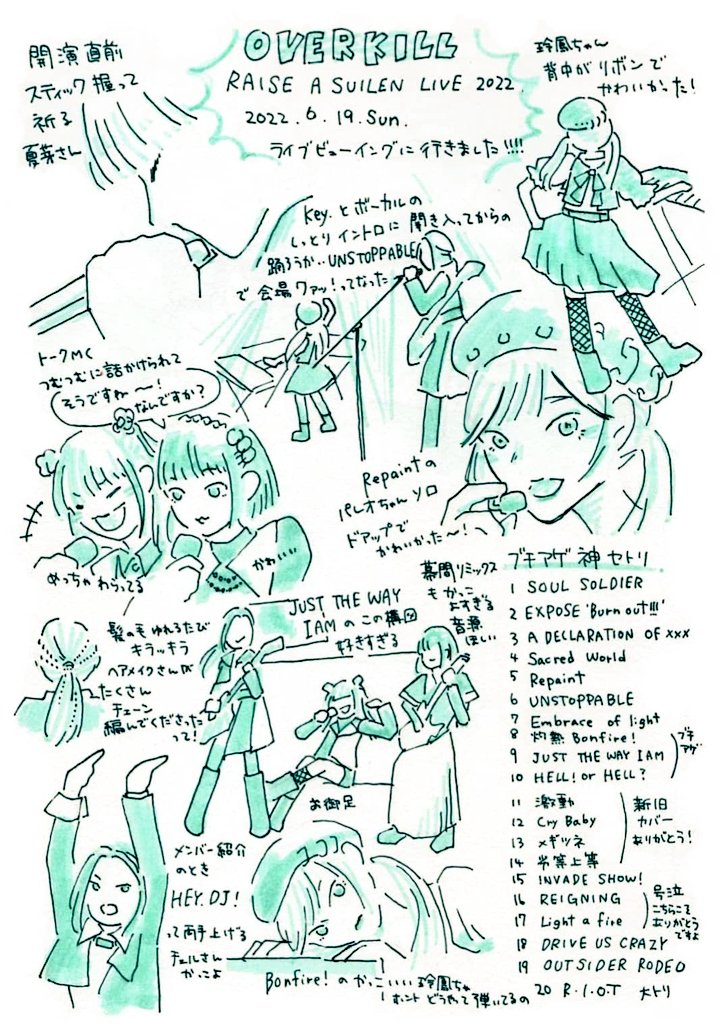 OVERKILL
RAISE A SUILEN LIVE 2022.
2022.6.19.Sun.
ライブビューイングに行きました!!!!
開演直前
スティック握って
祈る
夏芽さん
玲鳳ちゃん
背中がリボンで
かわいかった!
Key.とボーカルの
しっとりイントロに聞き入ってからの
踊ろうか‥UNSTOPPABLE
で会場ワァッ!ってなった
トークMC
つむつむに話かけられて
そうですね〜!
なんですか?
めっちゃわらってる
かわいい
Repaintの
パレオちゃんソロ
ドアップで
かわいかった〜!
髪の毛ゆれるたび
キラッキラ
ヘアメイクさんが
たくさん
チェーン
編んでくださった
って!
JUST THE WAY
I AMのこの構図
好きすぎる
幕間リミックス
もかっこ
よすぎる
音源
ほしい
お御足
メンバー紹介
のとき
HEY.DJ!
って両手上げる
チュチュさん
かっこよ
Bonfire!のかっこいい玲鳳ちゃ
ホントどうやって弾いてるの
ブチアゲ神セトリ
1 SOUL SOLDIER
2 EXPOSE 'Burn out!!!'
3 A DECLARATION OF xxx
4 Sacred World
5 Repaint
6 UNSTOPPABLE
7 Embrace of light
8 灼熱 Bonfire!
9 JUST THE WAY I AM
10 HELL! or HELL?
ブチ
アゲ
11 激動
12 Cry Baby
13 メギツネ
14 劣等上等
新旧
カバー
ありがとう!
15 INVADE SHOW!
16 REIGNING
17 Light a fire
号泣
こちらこそ
ありがとう
ですよ
18 DRIVE US CRAZY
19 OUTSIDER RODEO
20 R・I・O・T 大トリ